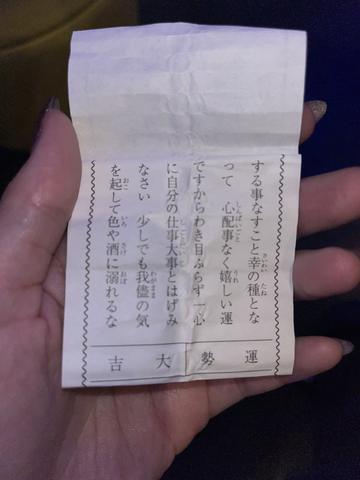 する事なすこと幸の種とな
って　心配事なく嬉しい運
ですからわき目ふらず一心
に自分の仕事大事とはげみ
なさい　少しでも我儘の気
を起して色や酒に溺れるな
運勢大吉